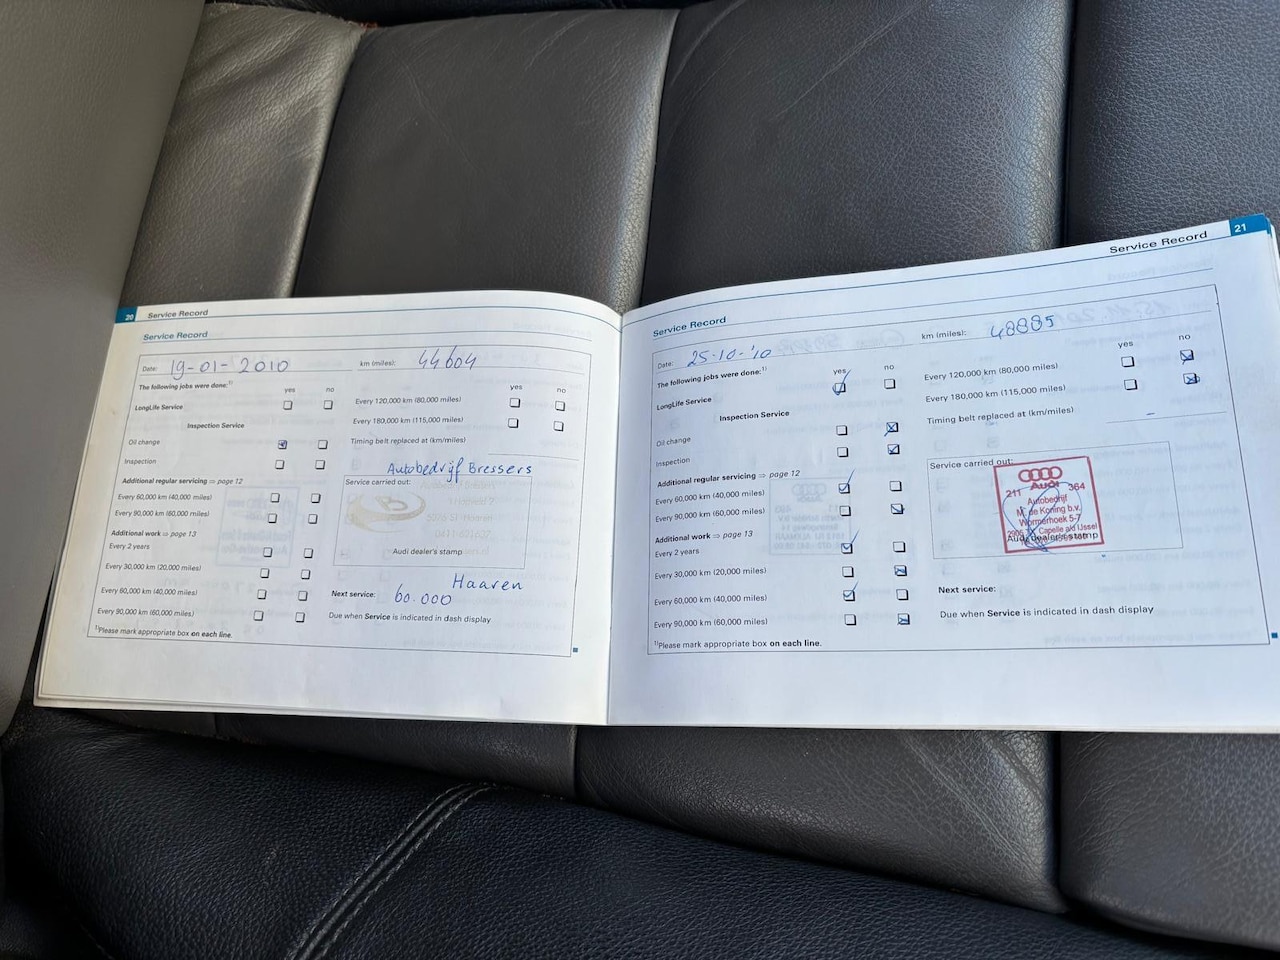 20 Service Record
Service Record
Date: 19-01-2010 km (miles): 44604
The following jobs were done:1)
yes no yes no
LongLife Service
Every 120,000 km (80,000 miles)
Inspection Service
Every 180,000 km (115,000 miles)
Oil change
Timing belt replaced at (km/miles)
Inspection
Autobedrijf Bressers
Additional regular servicing ⇒ page 12
Service carried out:
Every 60,000 km (40,000 miles)
Every 90,000 km (60,000 miles)
Additional work ⇒ page 13
Audi dealer's stamp
Every 2 years
Every 30,000 km (20,000 miles)
Haaren
Every 60,000 km (40,000 miles)
Next service: 60.000
Every 90,000 km (60,000 miles)
Due when Service is indicated in dash display
1)Please mark appropriate box on each line.
Service Record 21
Service Record
Date: 25-10-'10 km (miles): 48885
The following jobs were done:1)
yes no yes no
LongLife Service
Every 120,000 km (80,000 miles)
Inspection Service
Every 180,000 km (115,000 miles)
Oil change
Timing belt replaced at (km/miles) -
Inspection
Additional regular servicing ⇒ page 12
Service carried out:
Every 60,000 km (40,000 miles)
Every 90,000 km (60,000 miles)
Audi
211 364
Autobedrijf
M. de Koning b.v.
Wormerhoek 5-7
Capelle a/d IJssel
Audi dealer's stamp
Additional work ⇒ page 13
Every 2 years
Every 30,000 km (20,000 miles)
Every 60,000 km (40,000 miles)
Next service:
Every 90,000 km (60,000 miles)
Due when Service is indicated in dash display
1)Please mark appropriate box on each line.